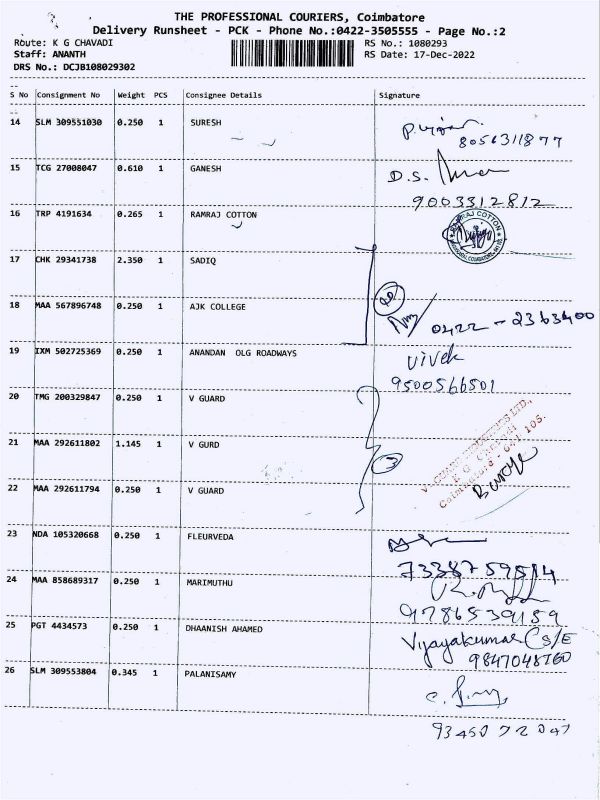 THE PROFESSIONAL COURIERS, Coimbatore
Delivery Runsheet - PCK - Phone No.:0422-3505555 - Page No.:2
Route: K G CHAVADI RS No.: 1080293
Staff: ANANTH RS Date: 17-Dec-2022
DRS No.: DCJB108029302
S No Consignment No Weight PCS Consignee Details Signature
14 SLM 309551030 0.250 1 SURESH
8056311877
15 TCG 27008047 0.610 1 GANESH D.S.
9003312812
16 TRP 4191634 0.265 1 RAMRAJ COTTON RAMRAJ COTTON
17 CHK 29341738 2.350 1 SADIQ
18 MAA 567896748 0.250 1 AJK COLLEGE 0422 - 2363400
19 IXM 502725369 0.250 1 ANANDAN OLG ROADWAYS Vivek
9500566501
20 TMG 200329847 0.250 1 V GUARD
21 MAA 292611802 1.145 1 V GURD 3
22 MAA 292611794 0.250 1 V GUARD
23 NDA 105320668 0.250 1 FLEURVEDA
7338759514
24 MAA 858689317 0.250 1 MARIMUTHU
9786539159
25 PGT 4434573 0.250 1 DHAANISH AHAMED Vijayakumar CS/E
9847048760
26 SLM 309553804 0.345 1 PALANISAMY
93450 72047